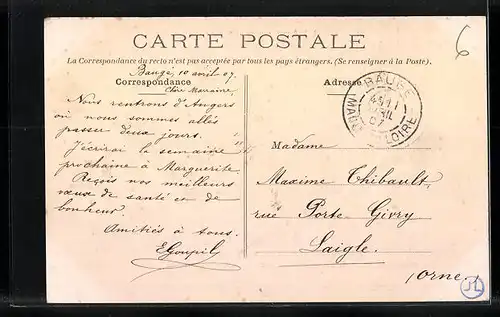 6
CARTE POSTALE
La Correspondance du recto n'est pas acceptée par tous les pays étrangers. (Se renseigner à la Poste).
Baugé, 10 avril 07.
Correspondance
Chère Marraine,
Nous rentrons d'Angers
où nous sommes allés
passer deux jours.
J'écrirai la semaine
prochaine à Marguerite.
Reçois nos meilleurs
vœux de santé et de
bonheur.
Amitiés à tous.
EGoupil
Adresse
BAUGÉ
07
LOIRE
Madame
Maxime Thibault,
rue Porte Givry
Laigle.
(Orne.)
JL